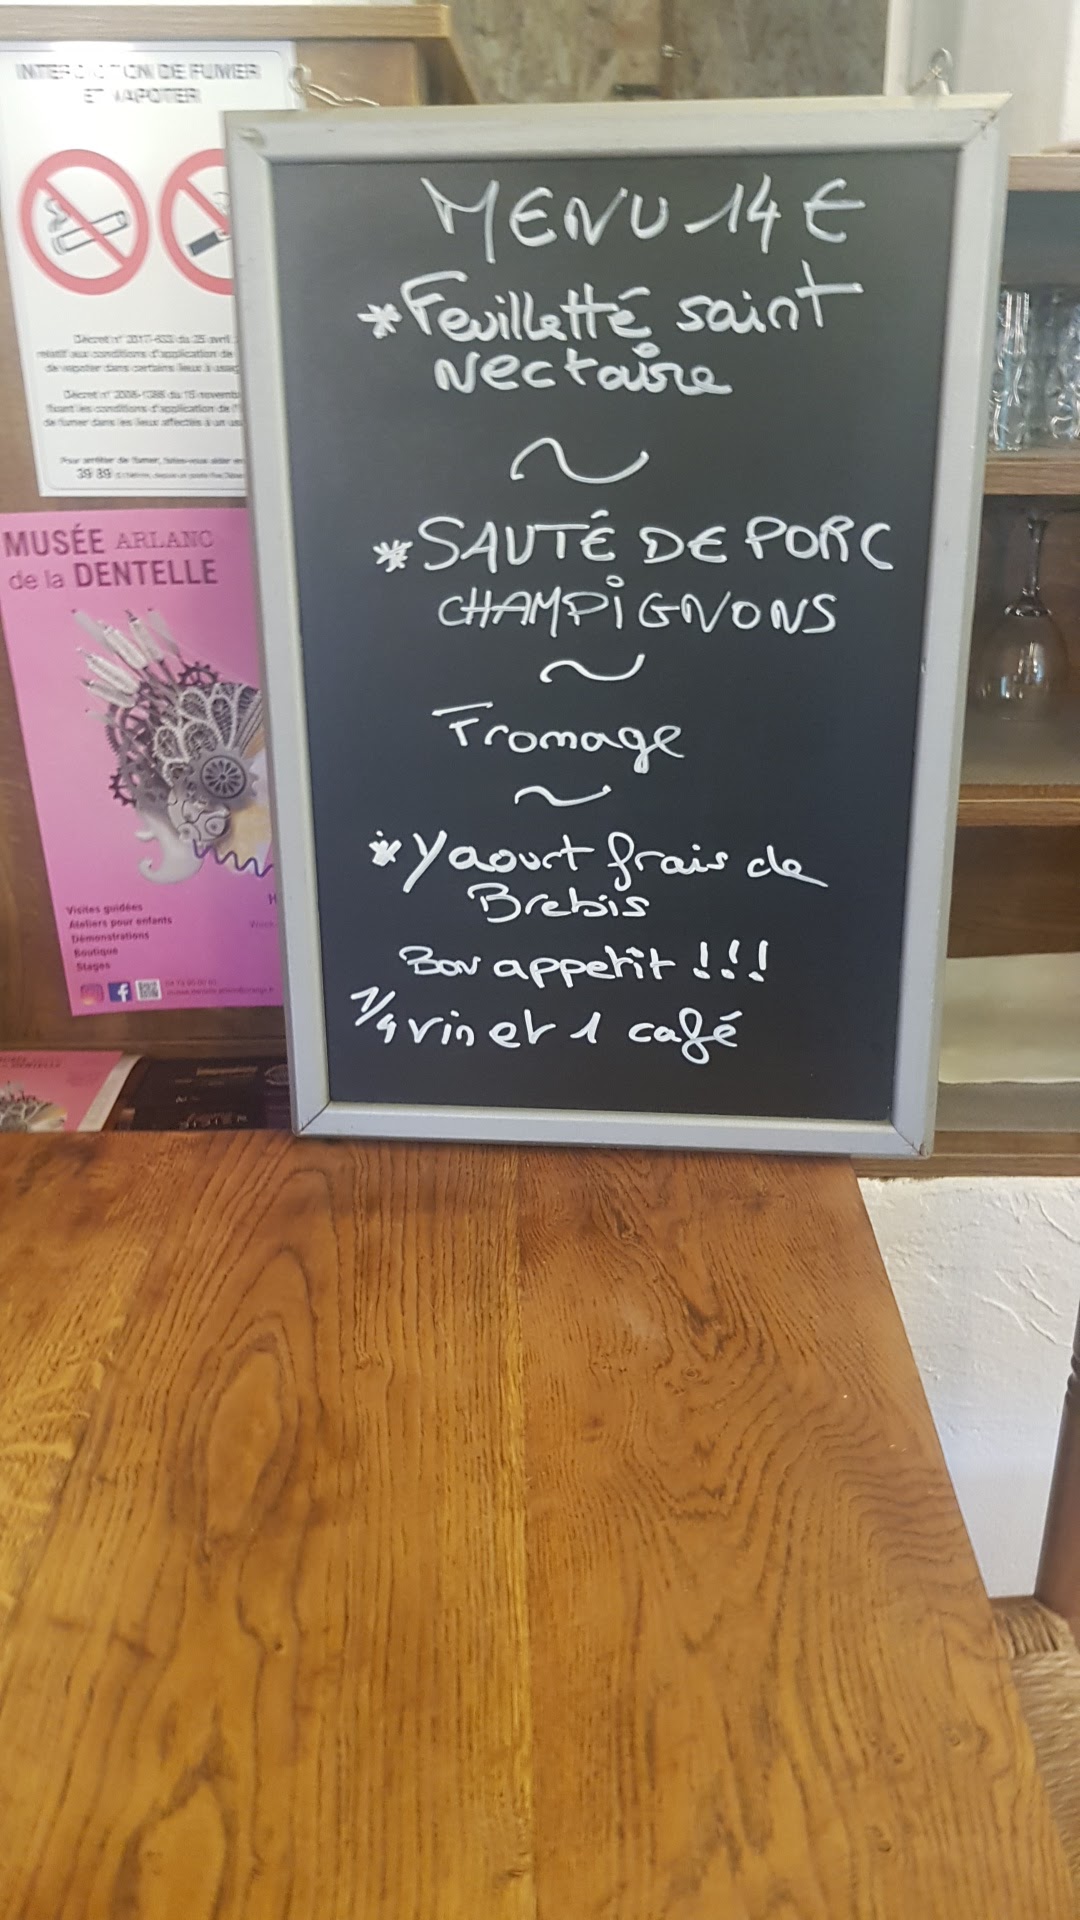 INTERDICTION DE FUMER
ET VAPOTER
Décret n° 2017-633 du 25 avril
relatif aux conditions d'application de
de vapoter dans certains lieux à usag
Décret n° 2006-1386 du 15 novemb
fixant les conditions d'application de l'i
de fumer dans les lieux affectés à un us
Pour arrêter de fumer, faites-vous aider en
39 89
MUSÉE ARLANC
de la DENTELLE
Visites guidées
Ateliers pour enfants
Démonstrations
Boutique
Stages
MENU 14 €
*Feuilletté saint
Nectaire
~
*SAUTÉ DE PORC
CHAMPIGNONS
~
Fromage
~
*Yaourt frais de
Brebis
Bon appetit !!!
1/4 vin et 1 café